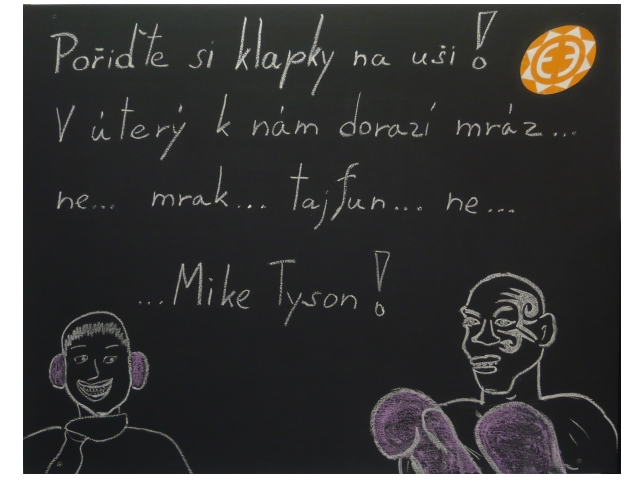 Pořiďte si klapky na uši!
V úterý k nám dorazí mráz...
ne... mrak... tajfun... ne...
...Mike Tyson!